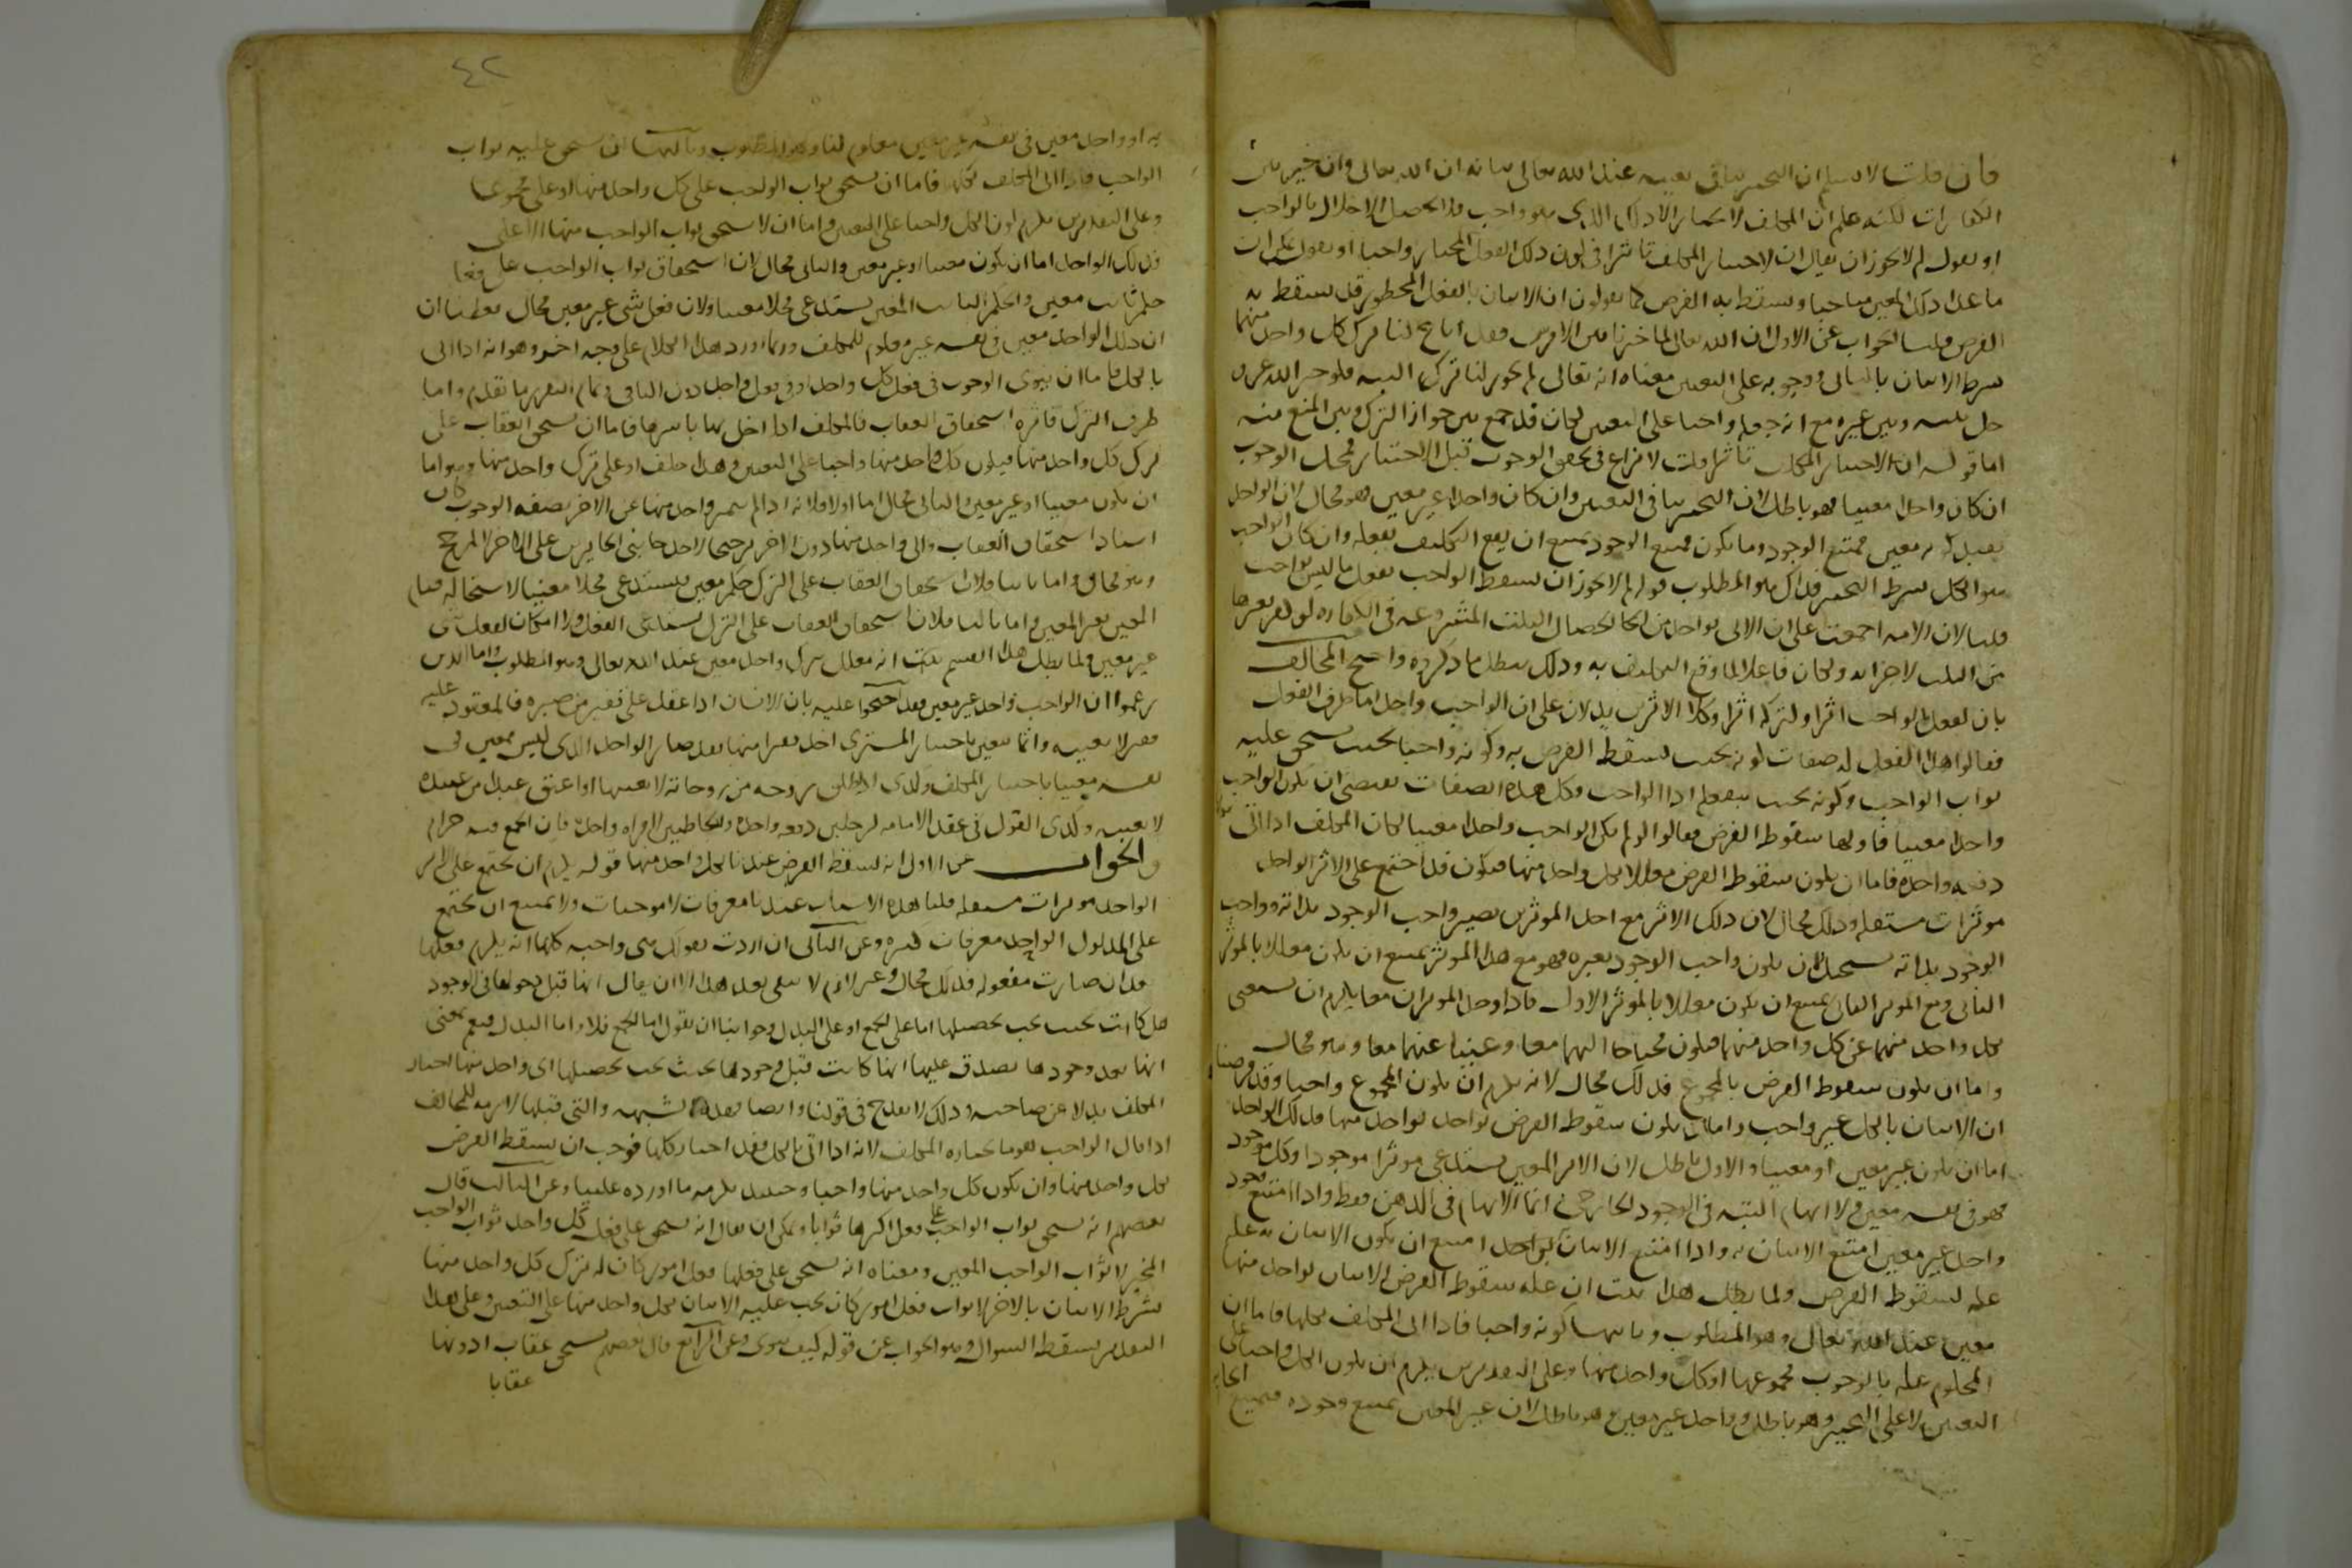 فان قلت لا نسلم ان التخيير ينافي تعيينه عند الله تعالى بيانه ان الله تعالى وان خير بين
الكفارات لكنه علم ان المكلف لا يختار الا ذلك الذي هو واجب فلا يحصل الاخلال بالواجب
او نقول لم لا يجوز ان يقال ان لاختيار المكلف تاثيرا في كون ذلك الفعل المختار واجبا او نقول
ما عدا ذلك المعين مباحا ويسقط به الفرض كما تقولون ان الاتيان بالفعل المحظور قد يسقط به
الفرض قلنا الجواب عن الاول ان الله تعالى لما خيرنا بين الامرين فقد اباح لنا ترك كل واحد منهما
بشرط الاتيان بالثاني ووجوبه على التعيين معناه انه تعالى لم يجوز لنا تركه البتة فلو خير الله عز و
جل بينه وبين غيره مع انه جعله واجبا على التعيين لكان قد جمع بين جواز الترك وبين المنع منه
اما قوله ان لاختيار المكلف تاثيرا قلت لا نزاع في تحقق الوجوب قبل الاختيار فمحل الوجوب
ان كان واحدا معينا فهو باطل لان التخيير ينافي التعيين وان كان واحدا غير معين فهو محال لان الواحد
بقيد كونه غير معين ممتنع الوجود وما يكون ممتنع الوجود يمتنع ان يقع التكليف بفعله وان كان الواجب
هو الكل بشرط التخيير فذاك هو المطلوب قوله لم لا يجوز ان يسقط الواجب بفعل ما ليس بواجب
قلنا لان الامة اجمعت على ان الاتي بواحد من الخصال الثلث المشروعة في الكفارة لو كفر بغيرها
من الثلث لاجزاته ولكان فاعلا لما وقع التكليف به وذلك يبطل ما ذكروه واحتج المخالف
بان لفعل الواجب اثرا ولتركه اثرا وكلا الاثرين يدلان على ان الواجب واحد اما طرف الفعل
فقالوا هذا الفعل له صفات كونه بحيث يسقط الفرض به وكونه واجبا بحيث يستحق عليه
ثواب الواجب وكونه بحيث بفعله اذا الواجب وكل هذه الصفات تقتضي ان يكون الواجب
واحدا معينا فاولها سقوط الفرض فقالوا لو لم يكن الواجب واحدا معينا لكان المكلف اذا اتى بها
دفعة واحدة فاما ان يكون سقوط الفرض معللا بكل واحد منها فيكون قد اجتمع على الاثر الواحد
موثرات مستقلة وذلك محال لان ذلك الاثر مع احد الموثرين يصير واجب الوجود بذاته وواجب
الوجود بذاته يستحيل ان يكون واجب الوجود بغيره فهو مع هذا الموثر يمتنع ان يكون معللا بالموثر
الثاني ومع الموثر الثاني يمتنع ان يكون معللا بالموثر الاول فاذا وجد الموثران معا يلزم ان يستغني
بكل واحد منهما عن كل واحد منهما فيكون محتاجا اليهما معا وغنيا عنهما معا وهو محال
واما ان يكون سقوط الفرض بالمجموع فذلك محال لانه يلزم ان يكون المجموع واجبا وقد فرضنا
ان الاتيان بالكل غير واجب واما ان يكون سقوط الفرض بواحد منها فذلك الواحد
اما ان يكون غير معين او معينا والاول باطل لان الاثر المعين يستدعي موثرا موجودا وكل موجود
فهو في نفسه معين ولا ابهام البتة في الوجود الخارجي انما الابهام في الذهن فقط واذا امتنع وجود
واحد غير معين امتنع الاتيان به واذا امتنع الاتيان بواحد امتنع ان يكون الاتيان به علة
علة لسقوط الفرض ولما بطل هذا ثبت ان علة سقوط الفرض الاتيان بواحد منها
معين عند الله تعالى وهو المطلوب وثانيها كونه واجبا فاذا اتى المكلف بكلها فاما ان
المحكوم عليه بالوجوب مجموعها او كل واحد منها وعلى التقديرين يلزم ان يكون الكل واجبا على
التعيين لا على التخيير وهو باطل او واحد غير معين وهو باطل لان غير المعين يمتنع وجوده فيمتنع
٤٢
به او واحد معين في نفسه غير معين معلوم لنا وهو المطلوب وثالثها ان يستحق عليه ثواب
الواجب فاذا اتى المكلف بكلها فاما ان يستحق ثواب الواجب على كل واحد منها او على مجموعها
وعلى التقديرين يلزم كون الكل واجبا على التعيين واما ان لا يستحق ثواب الواجب منها الا على
فذلك الواحد اما ان يكون معينا او غير معين والثاني محال لان استحقاق ثواب الواجب على فعلها
حكم ثابت معين والحكم الثابت المعين يستدعي محلا معينا ولان فعل شي غير معين محال فعلمنا ان
ان ذلك الواحد معين في نفسه غير معلوم للمكلف وربما اورد هذا الكلام على وجه اخر وهو انه اذا اتى
بالكل فاما ان ينوي الوجوب في فعل كل واحد او في فعل واحد دون الباقي وتمام التقرير ما تقدم واما
طرف الترك فاثره استحقاق العقاب فالمكلف اذا اخل بها باسرها فاما ان يستحق العقاب على
ترك كل واحد منها فيكون كل واحد منها واجبا على التعيين وهذا خلف او على ترك واحد منها وهو اما
ان يكون معينا او غير معين والثاني محال اما اولا فلانه اذا لم يتميز واحد منها عن الاخر بصفة الوجوب كان
اسناد استحقاق العقاب الى واحد منها دون الاخر ترجيحا لاحد جانبي الجايز على الاخر لا لمرجح
وهو محال واما ثانيا فلان استحقاق العقاب على الترك حكم معين فيستدعي محلا معينا لاستحالة قيام
المعين بغير المعين واما ثالثا فلان استحقاق العقاب على الترك يستدعي الفعل ولا امكان لفعل شي
غير معين ولما بطل هذا القسم ثبت انه معلل بترك واحد معين عند الله تعالى وهو المطلوب واما الذين
زعموا ان الواجب واحد غير معين فقد احتجوا عليه بان الانسان اذا عقد على قفيز من صبرة فالمعقود عليه
قفيز لا بعينه وانما يتعين باختيار المشتري اخذ قفيزا منها فقد صار الواحد الذي ليس بمعين في
نفسه معينا باختيار المكلف وكذى اذا طلق زوجة من زوجاته لا بعينها او اعتق عبدا من عبيده
لا بعينه وكذى القول في عقد الامامة لرجلين دفعة واحدة والخاطبين لامراة واحدة فان الجمع فيه حرام
والجواب عن الاول انه يسقط الفرض عندنا بكل واحد منها قوله يلزم ان يجتمع على الاثر
الواحد موثرات مستقلة قلنا هذه الاسباب عندنا معرفات لا موجبات ولا يمتنع ان يجتمع
على المدلول الواحد معرفات كثيرة وعن الثاني ان اردت بقولك هي واجبة كلها انه يلزم فعلها
بعد ان صارت مفعولة فذلك محال وغير لازم لا يبقى بعد هذا الا ان يقال انها قبل دخولها في الوجود
هل كانت بحيث يجب تحصيلها اما على الجمع او على البدل وجوابنا ان نقول اما الجمع فلا واما البدل فنعم بمعنى
انها بعد وجودها يصدق عليها انها كانت قبل وجودها بحيث يجب تحصيلها اي واحد منها اختار
المكلف بدلا عن صاحبه وذلك لا يقدح في قولنا وايضا فهذه الشبهة والتي قبلها لازمة للمخالف
اذا قال الواجب هو ما يختاره المكلف لانه اذا اتى بالكل فقد اختار كلها فوجب ان يسقط الفرض
بكل واحد منها وان يكون كل واحد منها واجبا وحينئذ يلزمه ما اورده علينا وعن الثالث قال
بعضهم انه يستحق ثواب الواجب على فعل اكثرها ثوابا ويمكن ان يقال انه يستحق على فعل كل واحد ثواب الواجب
المخير لا ثواب الواجب المعين ومعناه انه يستحق على فعلها فعل امور كان له ترك كل واحد منها
بشرط الاتيان بالاخر لا ثواب فعل امور كان يجب عليه الاتيان بكل واحد منها على التعيين وعلى هذا
التقدير يسقط السوال وهو الجواب عن قوله كيف ينوي وعن الرابع قال بعضهم يستحق عقاب ادونها
عقابا